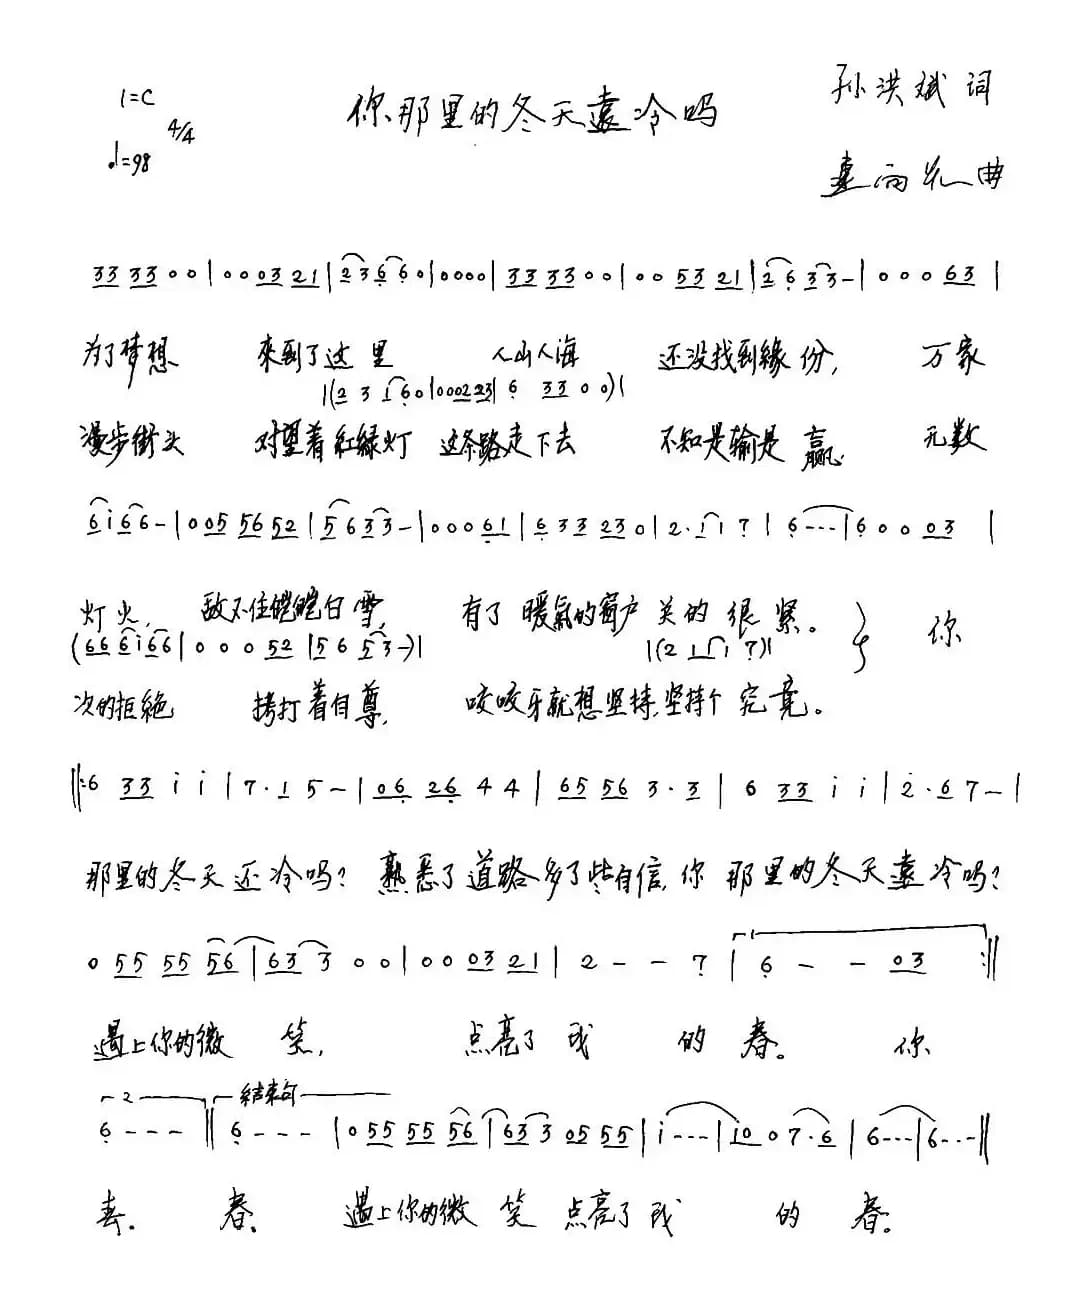 1=C 4/4 你那里的冬天遠冷吗 孙洪斌 词
♩=98 曲
33 33 0 0 | 0 0 03 21 | 23 66 0 | 0 0 0 0 | 33 33 0 0 | 0 0 53 21 | 26 33 - | 0 0 0 63 |
为了梦想 來到了这里 人山人海 还没找到緣份, 万家
|(2 3 1 6 0 | 0 0 0 2 23 | 6 33 0 0 )|
漫步街头 对望着紅緑灯 这条路走下去 不知是输是赢. 无数
6i 66 - | 0 05 56 52 | 56 33 - | 0 0 0 61 | 6 33 23 0 | 2 · 1 1 7 | 6 - - - | 6 0 0 03 |
灯火, 敌不住皑皑白雪, 有了暖氣的窗户关的很紧。 你
(66 6i 66 | 0 0 0 52 | 5 6 53 -)| |(2 11 1 7)|
次的拒絶 拷打着自尊, 咬咬牙就想坚持,坚持个究竟。
‖: 6 33 i i | 7 · 1 5 - | 06 26 4 4 | 65 56 3 · 3 | 6 33 i i | 2 · 6 7 - |
那里的冬天还冷吗? 熟悉了道路多了些自信, 你那里的冬天遠冷吗?
0 55 55 56 | 63 3 0 0 | 0 0 03 21 | 2 - - 7 | 6 - - 03 :‖
遇上你的微笑, 点亮了我的春。 你
2 结束句
6 - - - ‖ 6 - - - | 0 55 55 56 | 63 3 05 55 | i - - - | i0 0 7 · 6 | 6 - - - | 6 - - - ‖
春. 春. 遇上你的微笑 点亮了我的春。